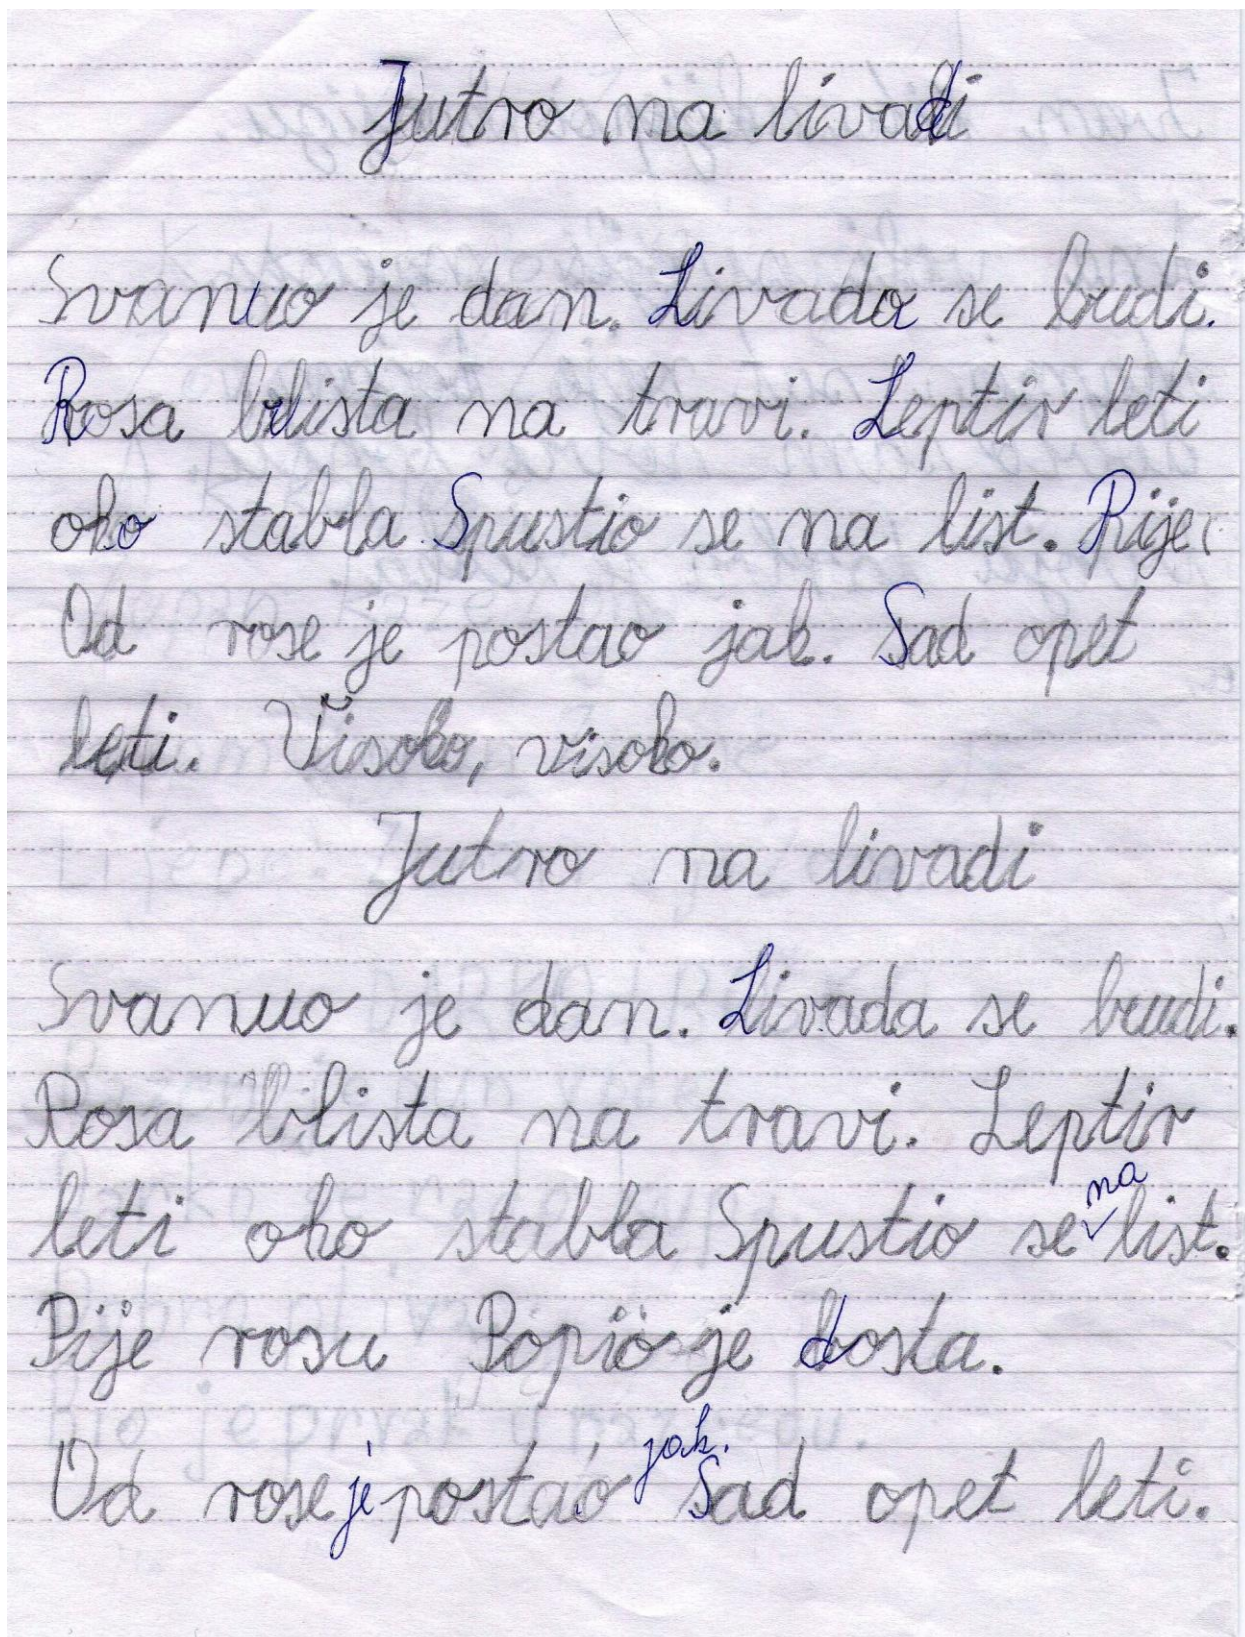 Jutro na livadi
Svanuo je dan. Livada se budi.
Rosa blista na travi. Leptir leti
oko stabla. Spustio se na list. Pije
Od rose je postao jak. Sad opet
leti. Visoko, visoko.
Jutro na livadi
Svanuo je dan. Livada se budi.
Rosa blista na travi. Leptir
leti oko stabla Spustio se na list.
Pije rosu Popio je dosta.
Od rose je postao jak. Sad opet leti.